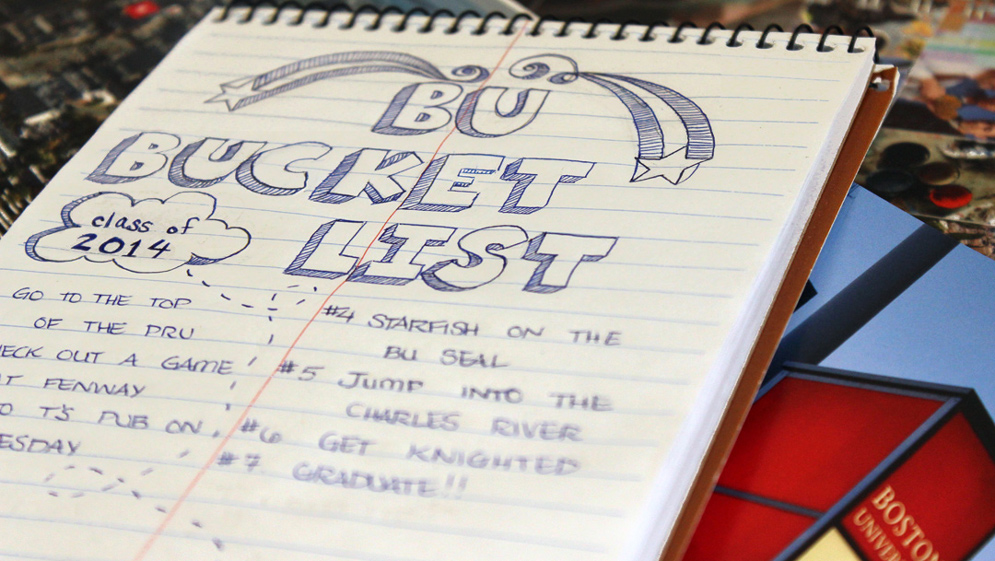 BU
BUCKET
LIST
class of
2014
GO TO THE TOP
OF THE PRU
ECK OUT A GAME
AT FENWAY
TO T'S PUB ON
ESDAY
#4 STARFISH ON THE
BU SEAL
#5 JUMP INTO THE
CHARLES RIVER
#6 GET KNIGHTED
#7 GRADUATE!!
BOSTON
UNIVER